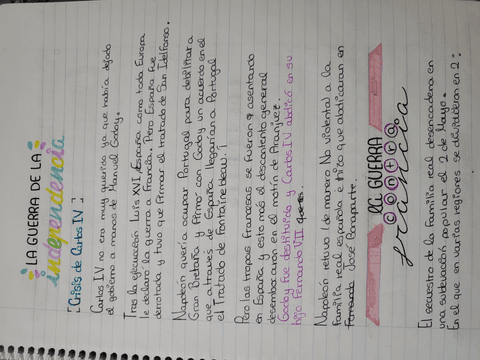 LA GUERRA DE LA
independencia
[Crisis de Carlos IV]
Carlos IV no era muy querido ya que había dejado
el gobierno a manos de Manuel Godoy.
Tras la ejecución Luis XVI, España como toda Europa
le declaró la guerra a Francia. Pero España fue
derrotada y tuvo que firmar el tratado de San Idelfonso.
Napoleón quería ocupar Portugal para debilitar a
Gran Bretaña y firmó con Godoy un acuerdo en el
que a través de España llegarían a Portugal
el Tratado de Fontainebleau.
Pero las tropas francesas se fueron asentando
en España y esto más el descontento general
desembocaron en el motín de Aranjuez.
Godoy fue destituido y Carlos IV abdicó en su
hijo Fernando VII
Napoleón retuvo (de manera No violenta) a la
familia real española e hizo que abdicaran en
Fernando José Bonaparte.
LA GUERRA
contra
francia
El secuestro de la familia real desencadena en
una sublevación popular el 2 de Mayo.
En el que en varias regiones se dividieron en 2: